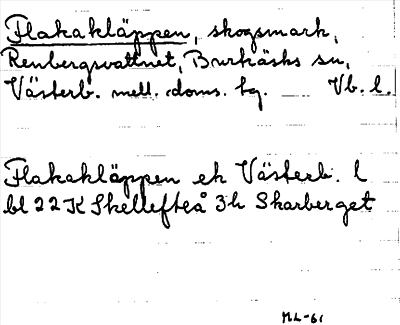 Flakakläppen, skogsmark,
Renbergsvattnet, Burträsks sn,
Västerb. mell. doms. tg. Vb. l.
Flakakläppen ek Västerb. l
bl 22 K Skellefteå 3h Skarberget
ML-61